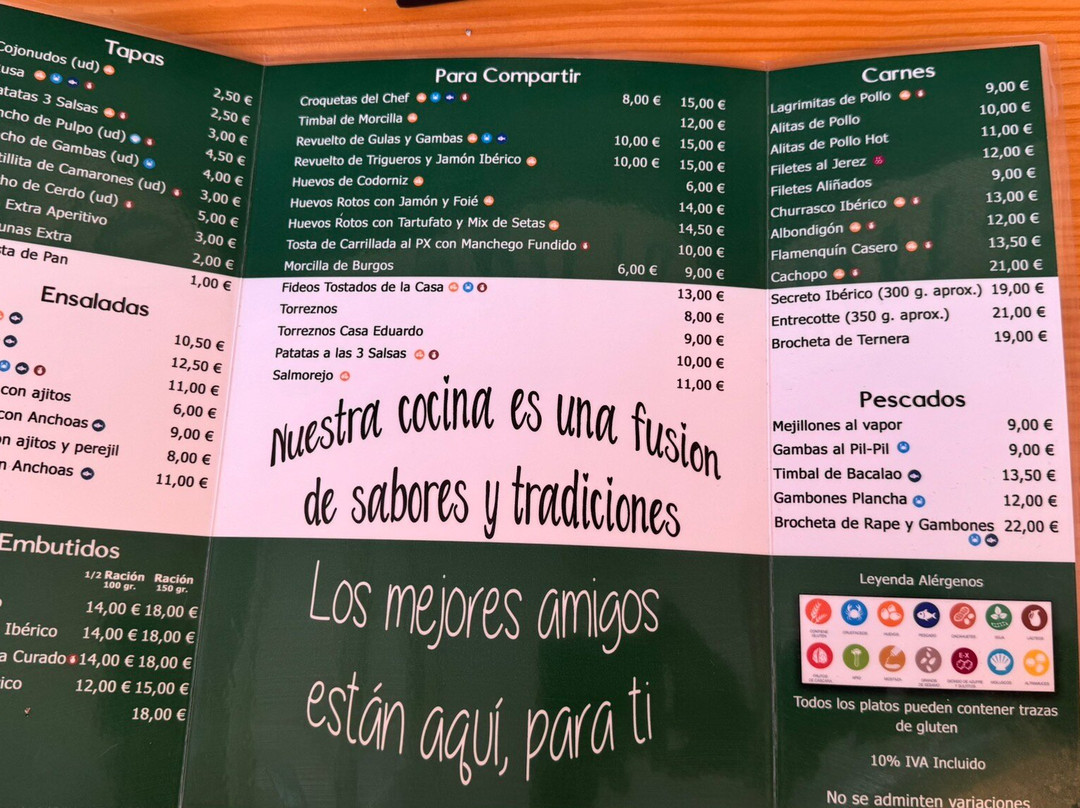 Tapas
Cojonudos (ud) 2,50 €
usa 2,50 €
atatas 3 Salsas 3,00 €
ncho de Pulpo (ud) 4,50 €
cho de Gambas (ud) 4,00 €
tillita de Camarones (ud) 3,00 €
ho de Cerdo (ud) 5,00 €
Extra Aperitivo 3,00 €
unas Extra 2,00 €
sta de Pan 1,00 €
Ensaladas
10,50 €
12,50 €
11,00 €
con ajitos 6,00 €
con Anchoas 9,00 €
on ajitos y perejil 8,00 €
n Anchoas 11,00 €
Embutidos
1/2 Ración Ración
100 gr. 150 gr.
14,00 € 18,00 €
Ibérico 14,00 € 18,00 €
a Curado 14,00 € 18,00 €
ico 12,00 € 15,00 €
18,00 €
Para Compartir
Croquetas del Chef 8,00 € 15,00 €
Timbal de Morcilla 12,00 €
Revuelto de Gulas y Gambas 10,00 € 15,00 €
Revuelto de Trigueros y Jamón Ibérico 10,00 € 15,00 €
Huevos de Codorniz 6,00 €
Huevos Rotos con Jamón y Foié 14,00 €
Huevos Rotos con Tartufato y Mix de Setas 14,50 €
Tosta de Carrillada al PX con Manchego Fundido 10,00 €
Morcilla de Burgos 6,00 € 9,00 €
Fideos Tostados de la Casa 13,00 €
Torreznos 8,00 €
Torreznos Casa Eduardo 9,00 €
Patatas a las 3 Salsas 10,00 €
Salmorejo 11,00 €
Nuestra cocina es una fusion
de sabores y tradiciones
Los mejores amigos
están aquí, para ti
Carnes
Lagrimitas de Pollo 9,00 €
Alitas de Pollo 10,00 €
Alitas de Pollo Hot 11,00 €
Filetes al Jerez 12,00 €
Filetes Aliñados 9,00 €
Churrasco Ibérico 13,00 €
Albondigón 12,00 €
Flamenquín Casero 13,50 €
Cachopo 21,00 €
Secreto Ibérico (300 g. aprox.) 19,00 €
Entrecotte (350 g. aprox.) 21,00 €
Brocheta de Ternera 19,00 €
Pescados
Mejillones al vapor 9,00 €
Gambas al Pil-Pil 9,00 €
Timbal de Bacalao 13,50 €
Gambones Plancha 12,00 €
Brocheta de Rape y Gambones 22,00 €
Leyenda Alérgenos
Todos los platos pueden contener trazas
de gluten
10% IVA Incluido
No se adminten variaciones